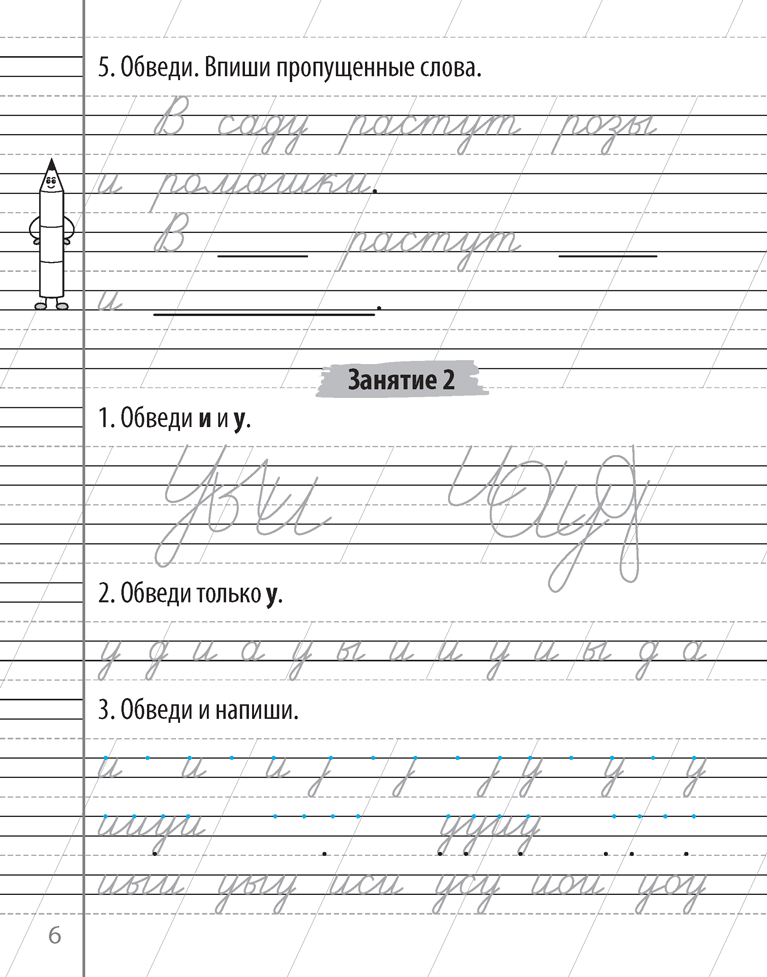 5. Обведи. Впиши пропущенные слова.
В саду растут розы
и ромашки.
В ____ растут ____
и ____.
Занятие 2
1. Обведи и и у.
2. Обведи только у.
у д и а у ы и и у и ы д а
3. Обведи и напиши.
ииуи ууиу
иыи уыу иси усу иои уоу
6